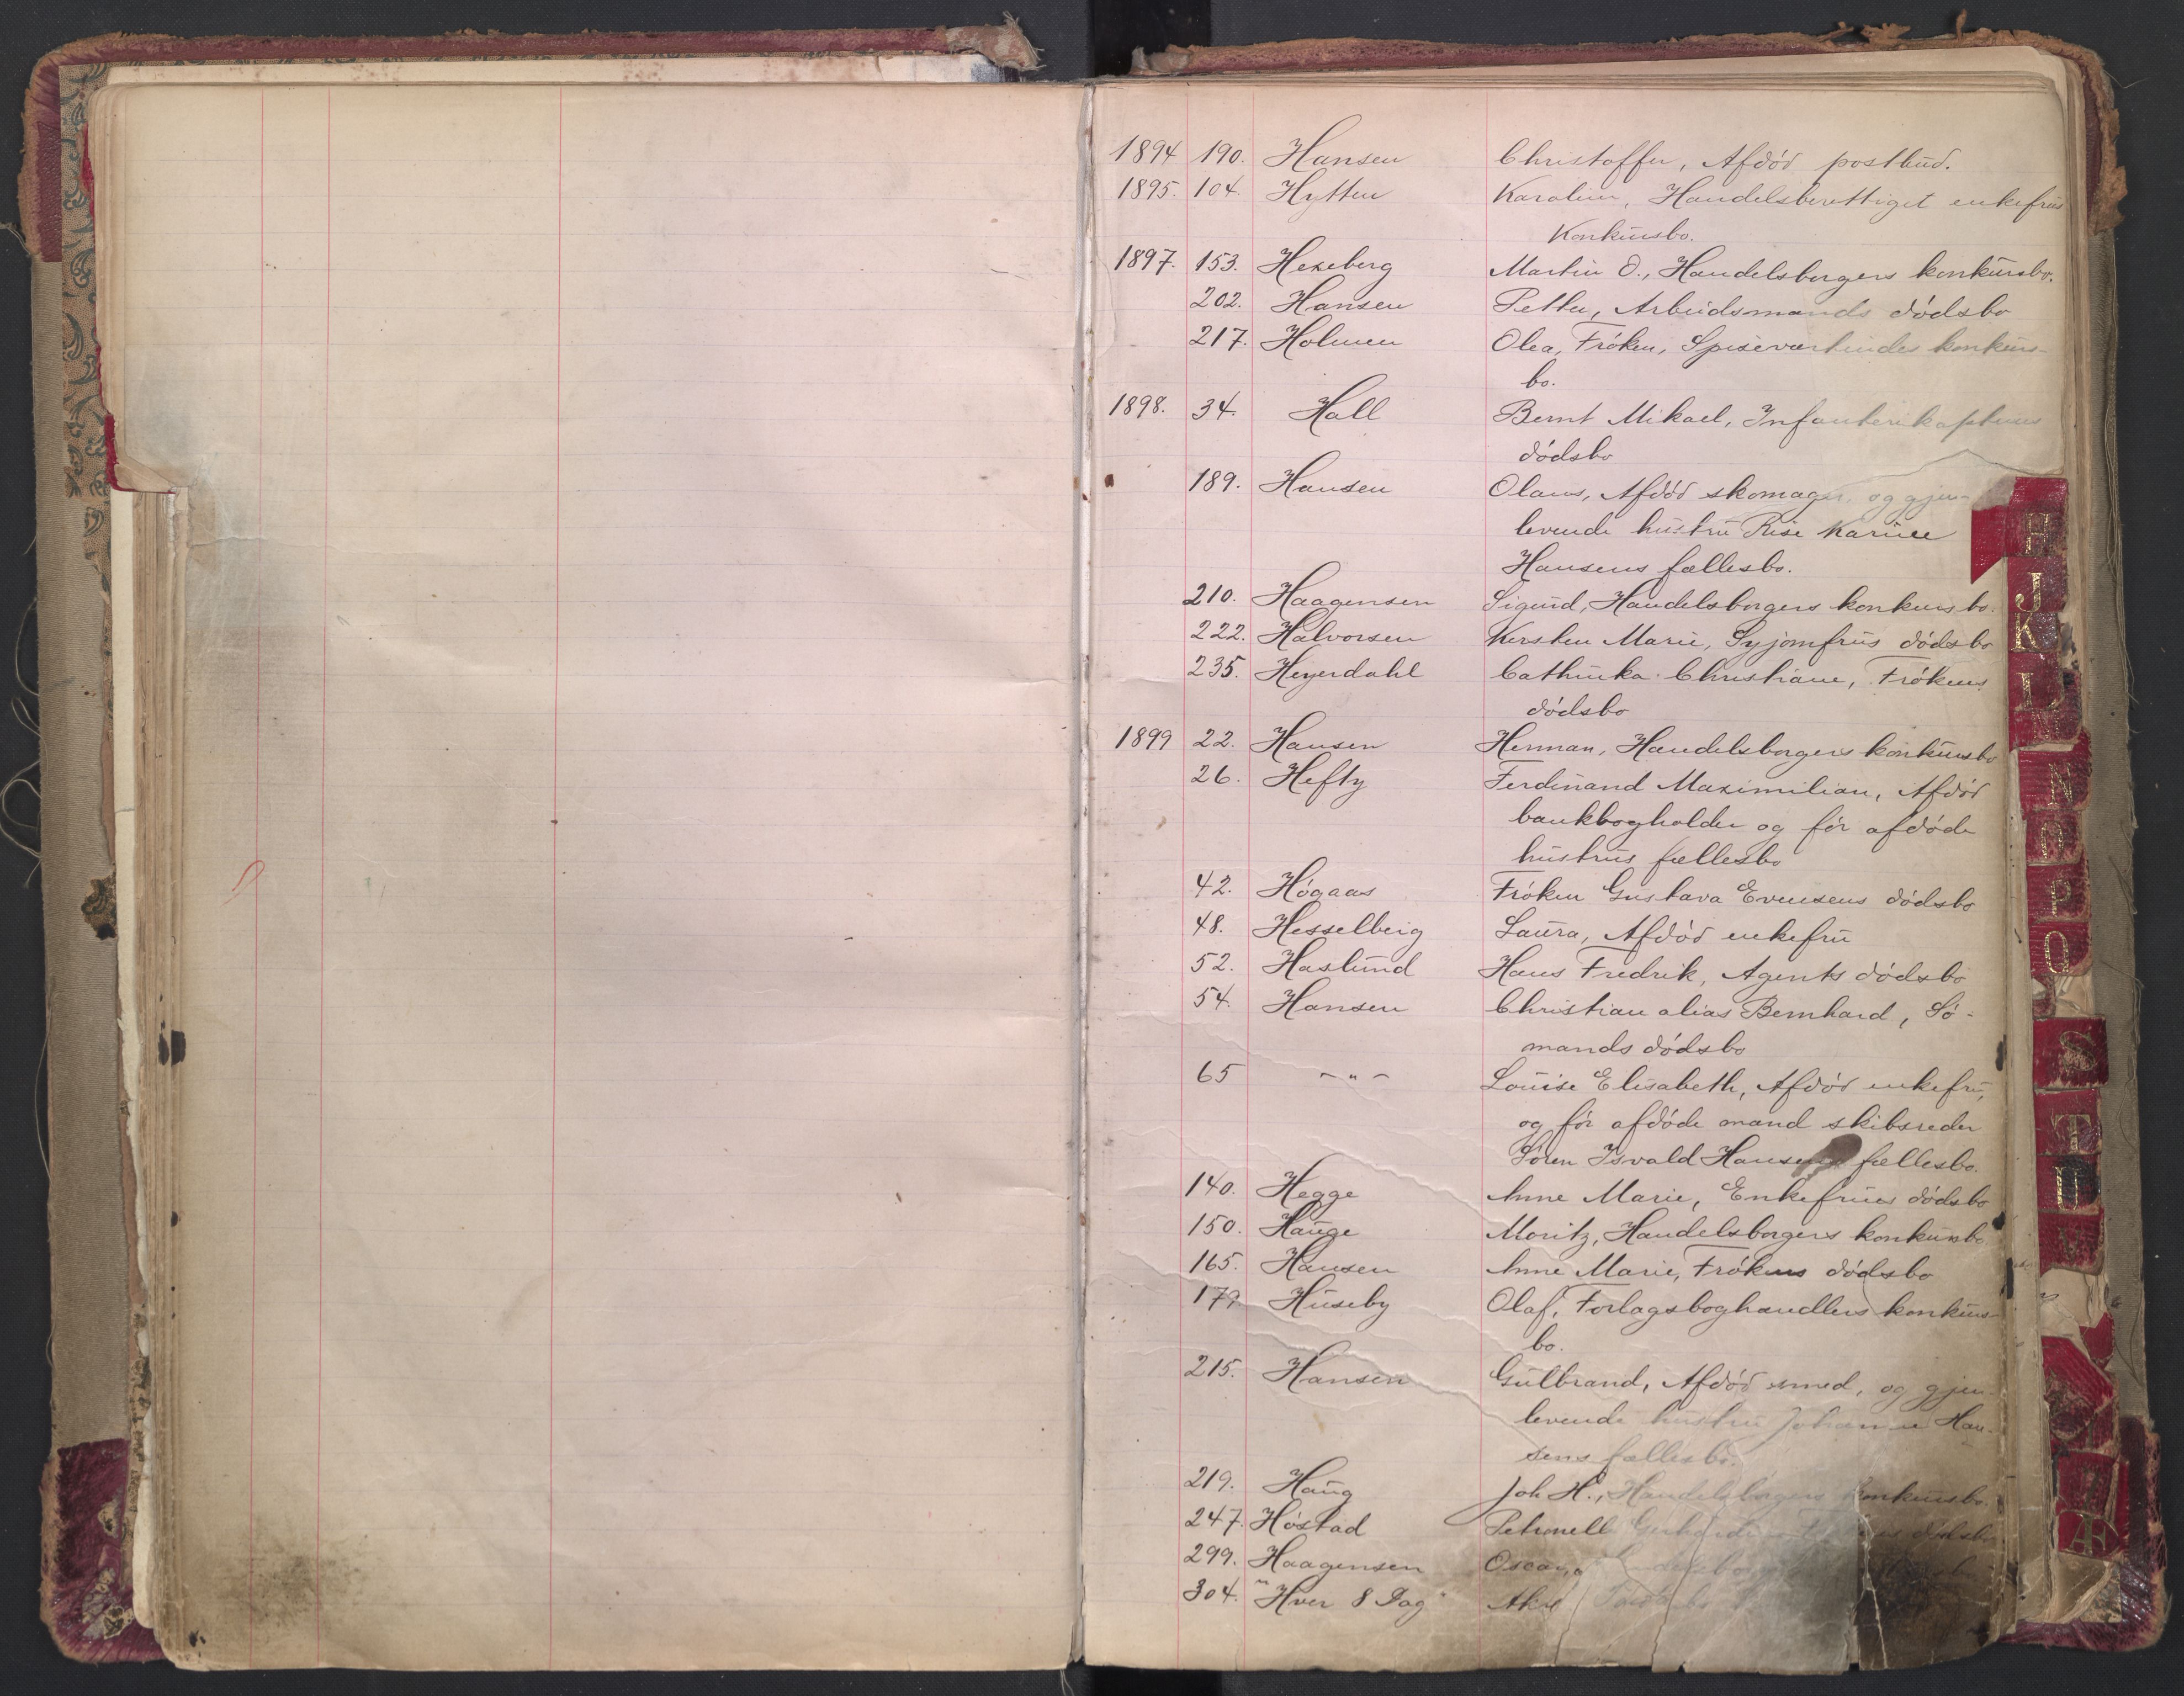 1894 190. Hansen Christoffer, Afdød postbud.
1895. 104. Hytten Karoline, Handelsberettiget enkefrus
Konkursbo.
1897. 153. Hexeberg Martin O., Handelsborgers konkursbo.
202. Hansen Petter, Arbeidsmands dødsbo
217. Holmen Olea, Frøken, Spiseværtindes konkurs-
bo.
1898. 34. Hall Bernt Mikael, Infanterikapteins
dødsbo
189. Hansen Olaus, Afdød skomager og gjen-
levende hustru Rise Karine
Hansens fællesbo.
210. Haagensen Sigurd, Handelsborgers konkursbo.
222. Halvorsen Kersten Marie, Syjomfrus dødsbo
235. Heyerdahl Cathinka Christiane, Frøkens
dødsbo
1899 22. Hansen Herman, Handelsborgers konkursbo
26. Hefty Ferdinand Maximilian, Afdød
bankbogholder og før afdøde
hustrus fællesbo
42. Høgaas Frøken Gustava Evensens dødsbo
48. Hesselberg Laura, Afdød enkefru
52. Haslund Hans Fredrik, Agents dødsbo
54. Hansen Christian alias Bernhard, Sø-
mands dødsbo
65 - " - Louise Elisabeth, Afdød enkefru,
og før afdøde mand skibsreder
Søren Isvald Hansens fællesbo.
140. Hegge Anne Marie, Enkefrues dødsbo
150. Hauge Moritz, Handelsborgers konkursbo
165. Hansen Anne Marie, Frøkens dødsbo
179. Huseby Olaf, Forlagsboghandlers konkurs-
bo.
215. Hansen Gulbrand, Afdød smed, og gjen-
levende hustru Johanne Han-
sens fællesbo.
219. Haug Joh H., Handelsborgers konkursbo.
247. Høstad Petronelle dødsbo
299. Haagensen Oscar,
304. "Hver 8 Dag"
H
J
K
L
N
P
Q
S
T
U
V
Æ